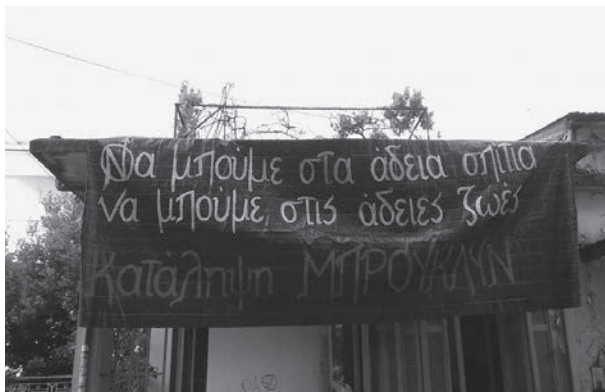 Να μπούμε στα άδεια σπίτια
να μπούμε στις άδειες ζωές
Κατάληψη ΜΠΡΟΥΚΛΥΝ